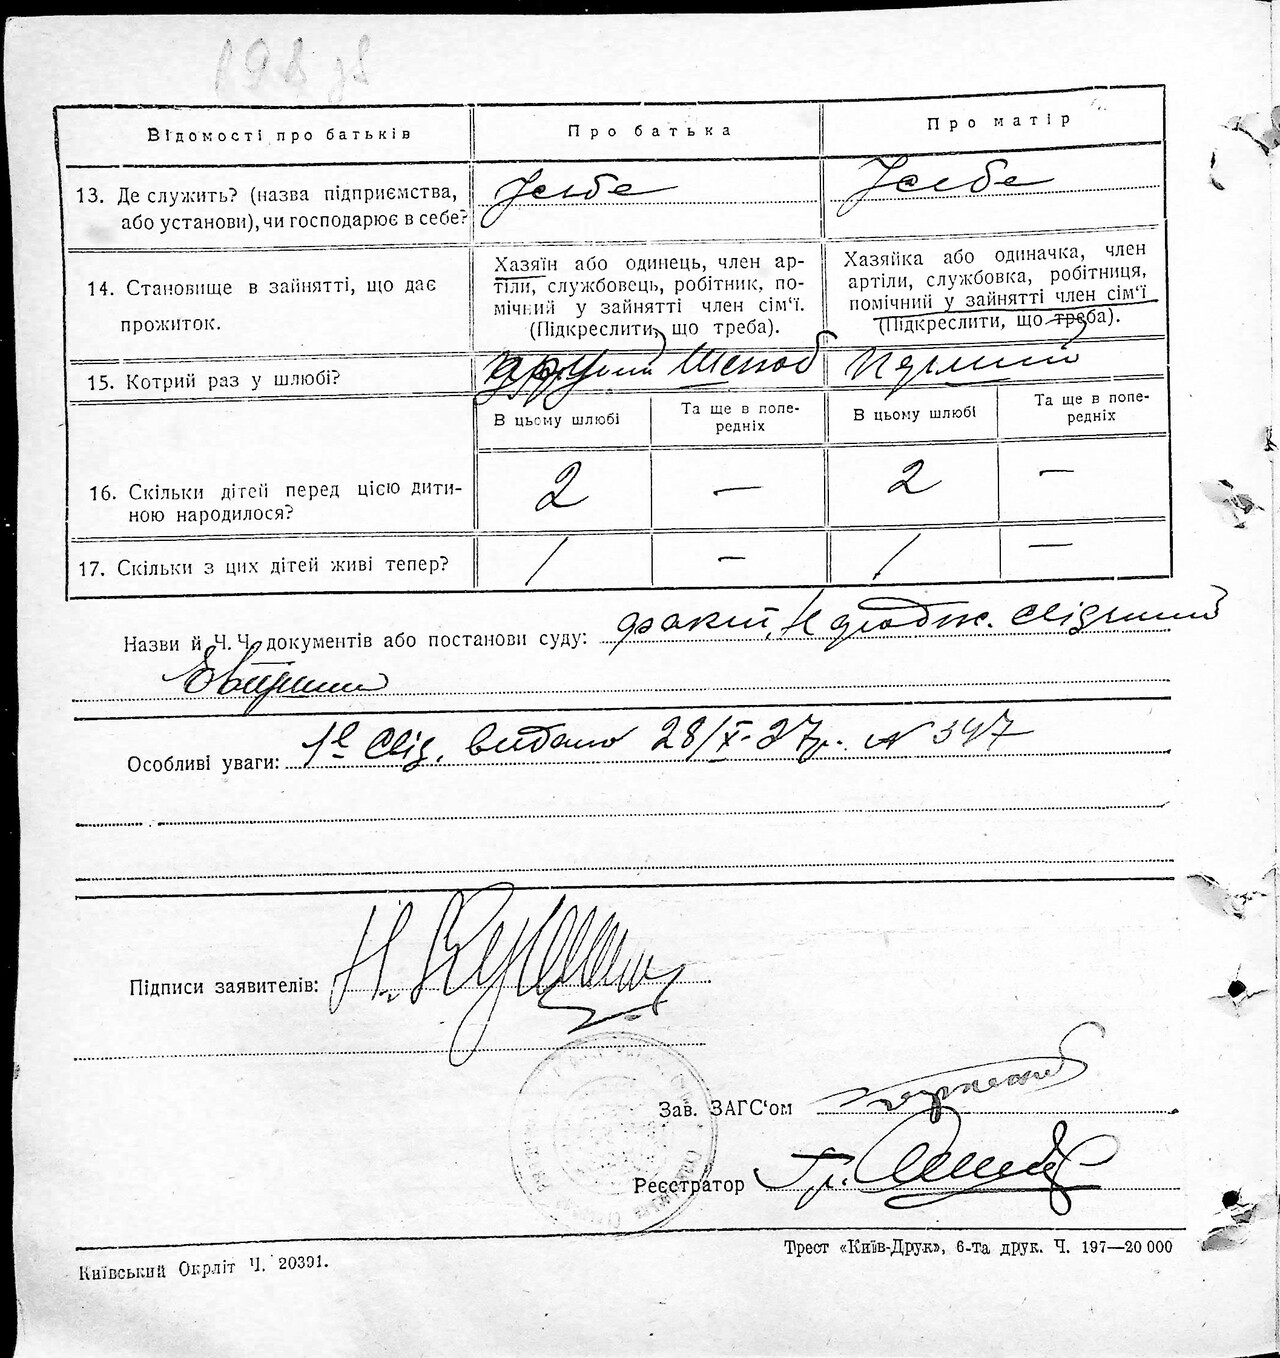 Відомості про батьків
Про батька
Про матір
13. Де служить? (назва підприємства,
або установи), чи господарює в себе?
У себе
У себе
14. Становище в зайнятті, що дає
прожиток.
Хазяїн або одинець, член ар-
тіли, службовець, робітник, по-
мічний у зайнятті член сім'ї.
(Підкреслити, що треба).
Хазяйка або одиначка, член
артіли, службовка, робітниця,
помічний у зайнятті член сім'ї
(Підкреслити, що треба).
15. Котрий раз у шлюбі?
другий шлюб
перший
В цьому шлюбі
Та ще в попе-
редніх
В цьому шлюбі
Та ще в попе-
редніх
16. Скільки дітей перед цією дити-
ною народилося?
2
—
2
—
17. Скільки з цих дітей живі тепер?
1
—
1
—
Назви й Ч. Ч. документів або постанови суду:
Особливі уваги: свід. видано 28/X-27р. № 347
Підписи заявителів:
Зав. ЗАГС'ом
Реєстратор
Київський Окрліт Ч. 20391.
Трест «Київ-Друк», 6-та друк. Ч. 197—20 000